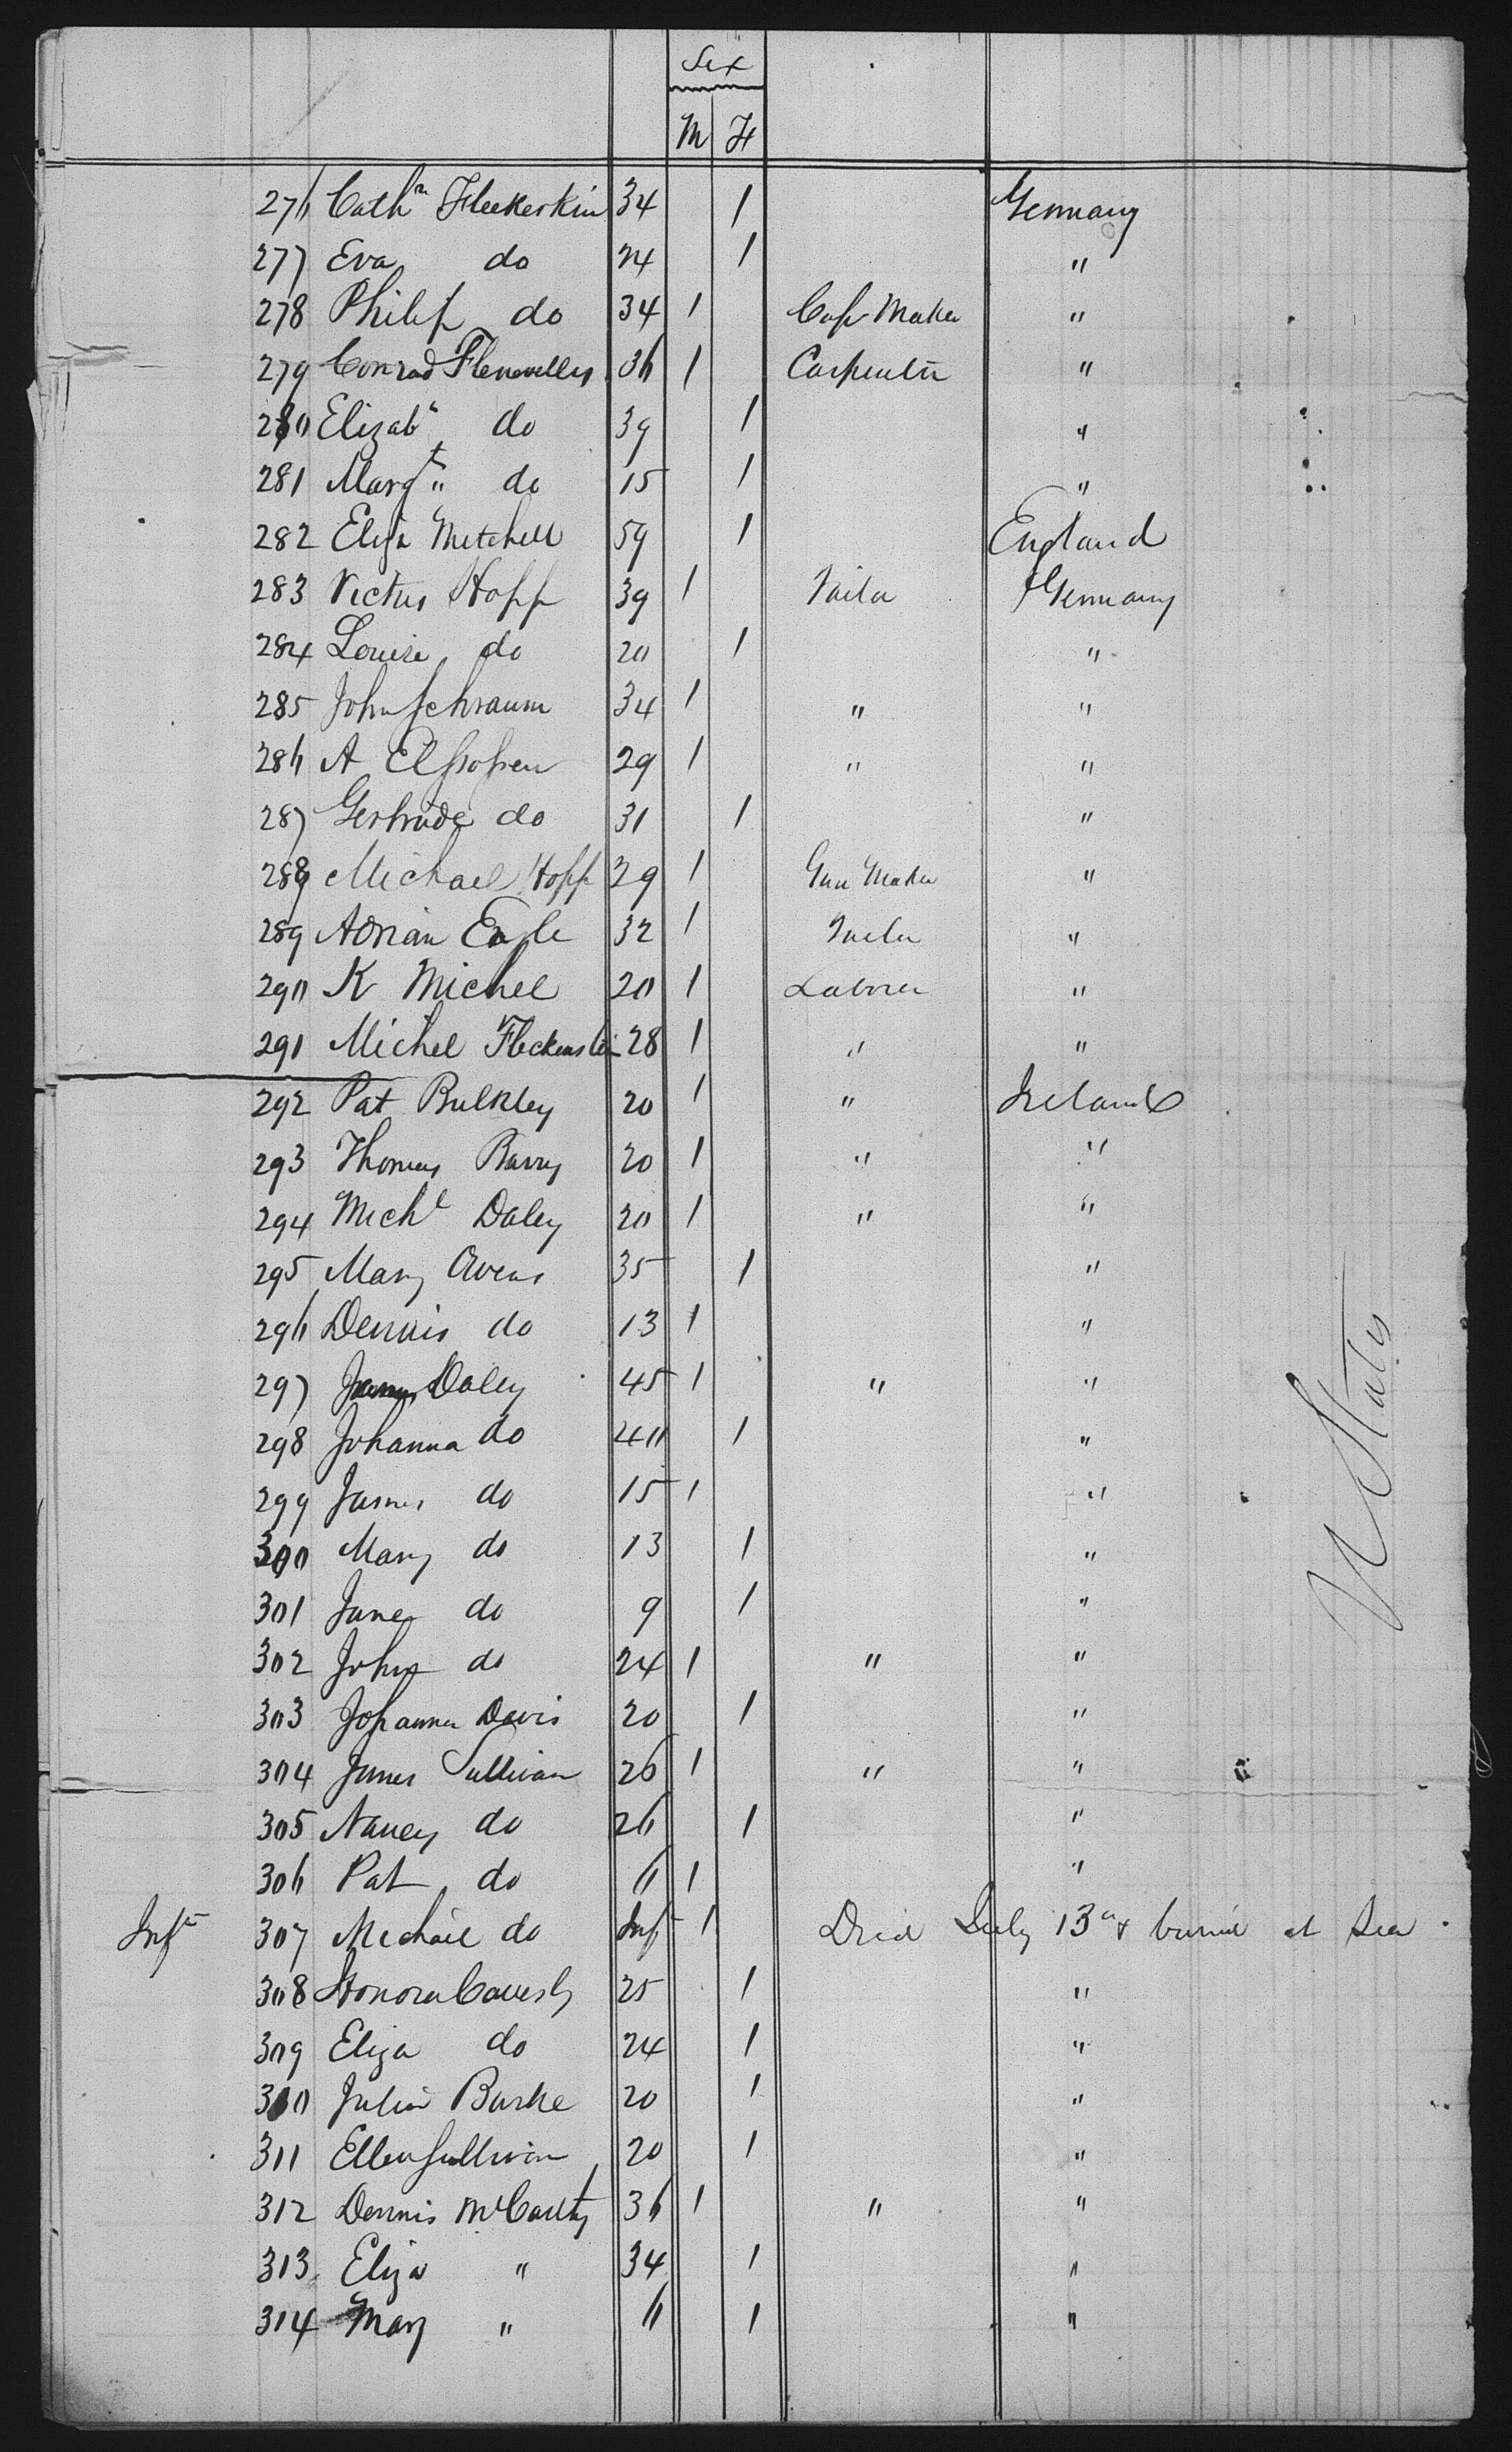 Sex
M F
276 Cathn Fleckerkin 34 1 Germany
277 Eva do 24 1 "
278 Philip do 34 1 Cap Maker "
279 Conrad 36 1 Carpenter "
280 Elizabh do 39 1 "
281 Margt " do 15 1 "
282 Eliza Mitchell 59 1 England
283 Victus Hopp 39 1 Tailor Germany
284 Louise do 20 1 "
285 John Schraum 34 1 " "
286 A 29 1 " "
287 Gertrude do 31 1 "
288 Michael Hopp 29 1 Gun Maker "
289 Adrian 32 1 Tailor "
290 K Michel 20 1 Laborer "
291 Michel Fleckenstein 28 1 " "
292 Pat Bulkley 20 1 " Ireland
293 Thomas Barry 20 1 " "
294 Michl Daley 20 1 " "
295 Mary Owens 35 1 "
296 Dennis do 13 1 "
297 James Daley 45 1 " "
298 Johanna do 40 1 "
299 James do 15 1 "
300 Mary do 13 1 "
301 Jane do 9 1 "
302 John do 24 1 " "
303 Johanna Davis 20 1 "
304 James Sullivan 26 1 " "
305 Nancy do 26 1 "
306 Pat do 6 1 "
Inft 307 Michael do Inf 1 Died July 13th & buried at Sea
308 Honora 25 1 "
309 Eliza do 24 1 "
310 Julia Burke 20 1 "
311 Ellen Sullivan 20 1 "
312 Dennis McCarthy 36 1 " "
313 Eliza " 34 1 "
314 Mary " 6 1 "
U States